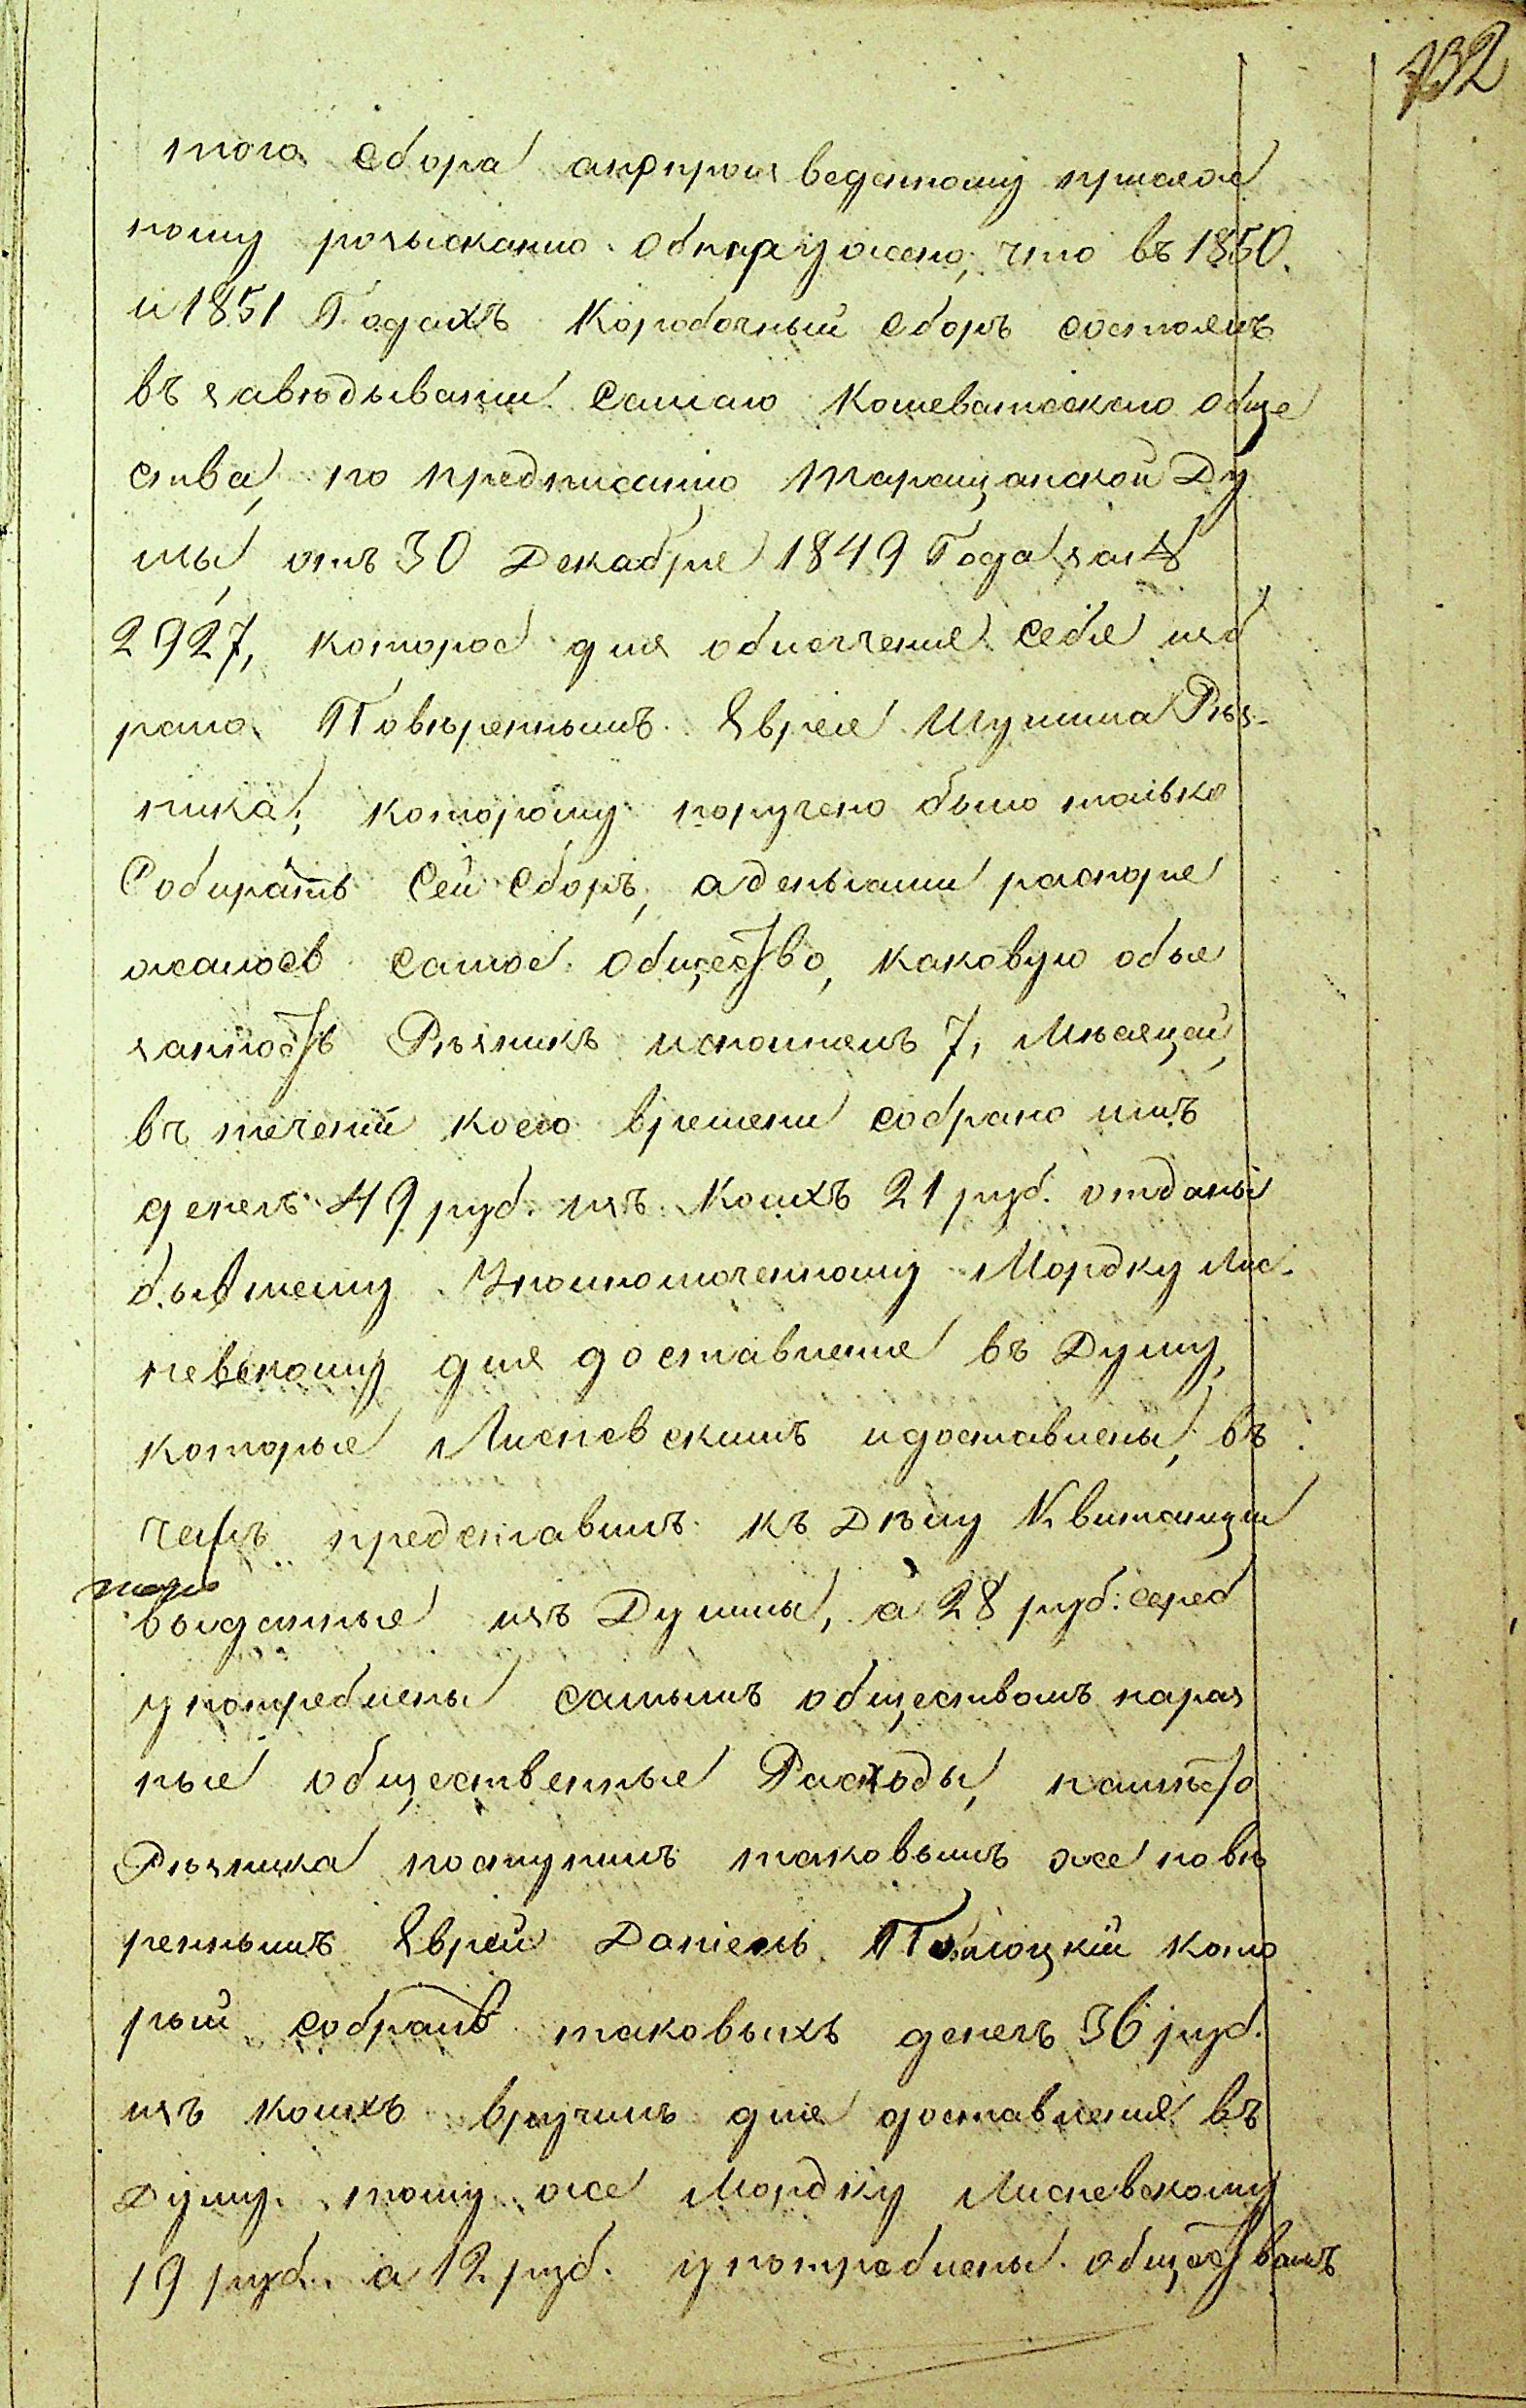 132
того сбора а по произведенному прислж
ному розысканию обнаружено, что въ 1850.
и 1851 Годахъ Коробочный сборъ состоялъ
въ завѣдывании самаго Кошеватскаго обще
ства, по предписанію Таращанской Ду
мы, отъ 30 Декабря 1849 Года за №
2927, которое для облегченія себя изб
рало Повѣреннымъ Еврея Шулима Рѣз-
ника; которому поручено было только
Собирать Сей Сборъ, а деньгами распоря
жалось самое общество, каковую обя
занность Рѣзникъ исполнялъ 7, Мѣсяцей,
въ теченіи коего времени собрано имъ
денегъ 49 руб. изъ Коихъ 21 руб. отданы
бывшему Уполномоченному Мордку Лис-
невскому для доставленія въ Думу,
которые Лисневскимъ и доставлены, въ
чемъ представилъ къ Дѣлу Квитанции
выданные изъ Думы, а 28 руб: сереб
употреблены самымъ обществомъ на раз
ные общественные Расходы, на мѣсто
Рѣзника поступилъ таковымъ же повѣ
реннымъ Еврей Даніель Полюцкій кото
рый собралъ таковыхъ денегъ 36 руб.
изъ коихъ вручилъ для доставленія въ
Думу тому же Мордку Лисневскому
19 руб. а 12 руб. употреблены обществамъ